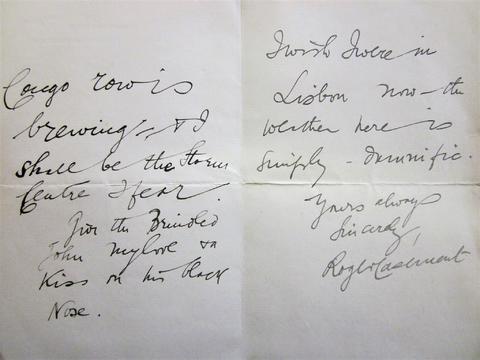 Congo row is
brewing, & I
shall be the Storm
Centre I fear.
Give the Brindled
John my love & a
Kiss on his black
Nose.
I wish I were in
Lisbon now - the
weather here is
simply - damnific.
Yours always
Sincerely,
Roger Casement